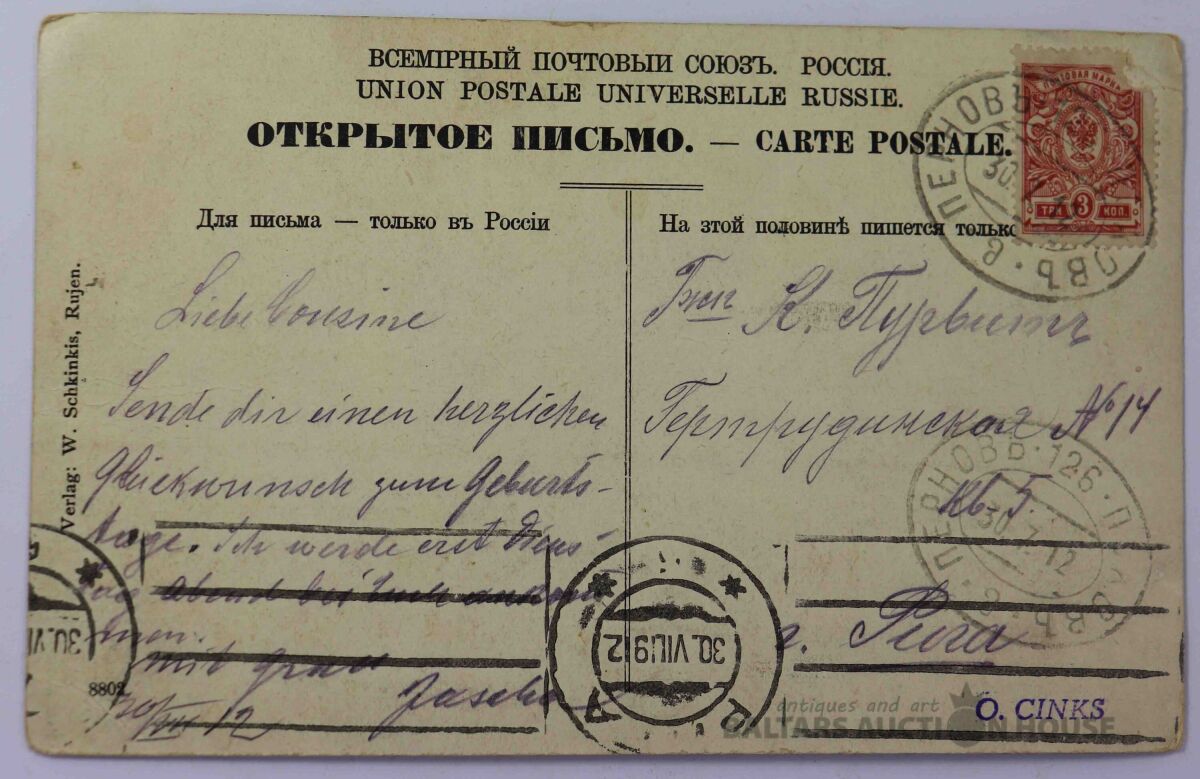 ВСЕМІРНЫЙ ПОЧТОВЫИ СОЮЗЪ. РОССІЯ.
UNION POSTALE UNIVERSELLE RUSSIE.
ОТКРЫТОЕ ПИСЬМО. — CARTE POSTALE.
ПОЧТОВАЯ МАРКА
ТРИ 3 КОП.
ПЕРНОВЪ
30.
Для письма — только въ Россіи
На зтой половинѣ пишется только
Verlag: W. Schķinkis, Rujen.
Liebe Cousine
Sende dir einen herzlichen
Glückwunsch zum Geburts-
tage. Ich werde erst Diens-
tag abend bei Euch ankom-
men.
mit Gruss
Jascha
30/VII 12
8802
Гжн К. Пурвитъ
Гертрудинская № 14
кв 5.
г. Рига
ПЕРНОВЪ · 126 ·
30.7.12
30.VII.1912
30.VI
O. CINKS
antiques and art
BALTARS AUCTION HOUSE